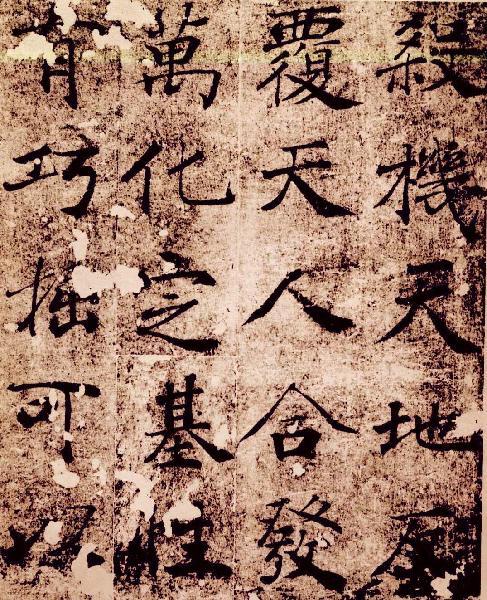 殺機天地
覆天人合發
萬化定基性
有巧拙可以